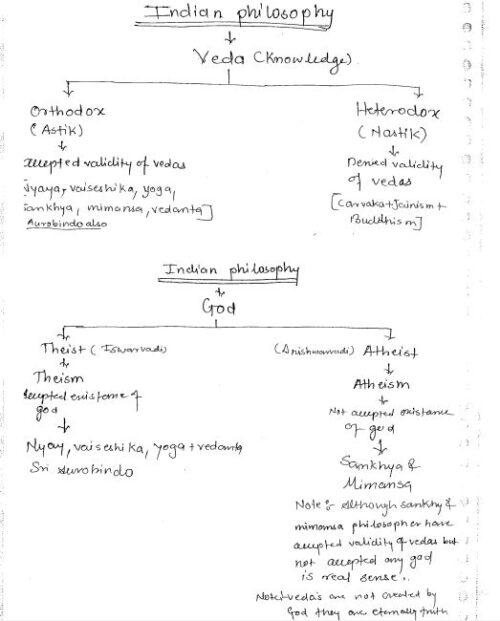 Indian philosophy
Veda (Knowledge)
Orthodox
(Astik)
accepted validity of vedas
[Nyaya, vaiseshika, yoga,
Sankhya, mimansa, vedanta]
Aurobindo also
Heterodox
(Nastik)
Denied validity
of vedas
[Carvaka+Jainism+
Buddhism]
Indian philosophy
God
Theist (Iswarvadi)
Theism
Accepted existence of
god
Nyay, vaiseshika, yoga + vedanta
Sri Aurobindo
(Anishwarvadi) Atheist
Atheism
Not accepted existance
of god
Sankhya &
Mimansa
Note:- Although sankhy &
mimansa philosopher have
accepted validity of vedas but
not accepted any god
is real sense..
Note:- veda's are not created by
God they are eternally truth